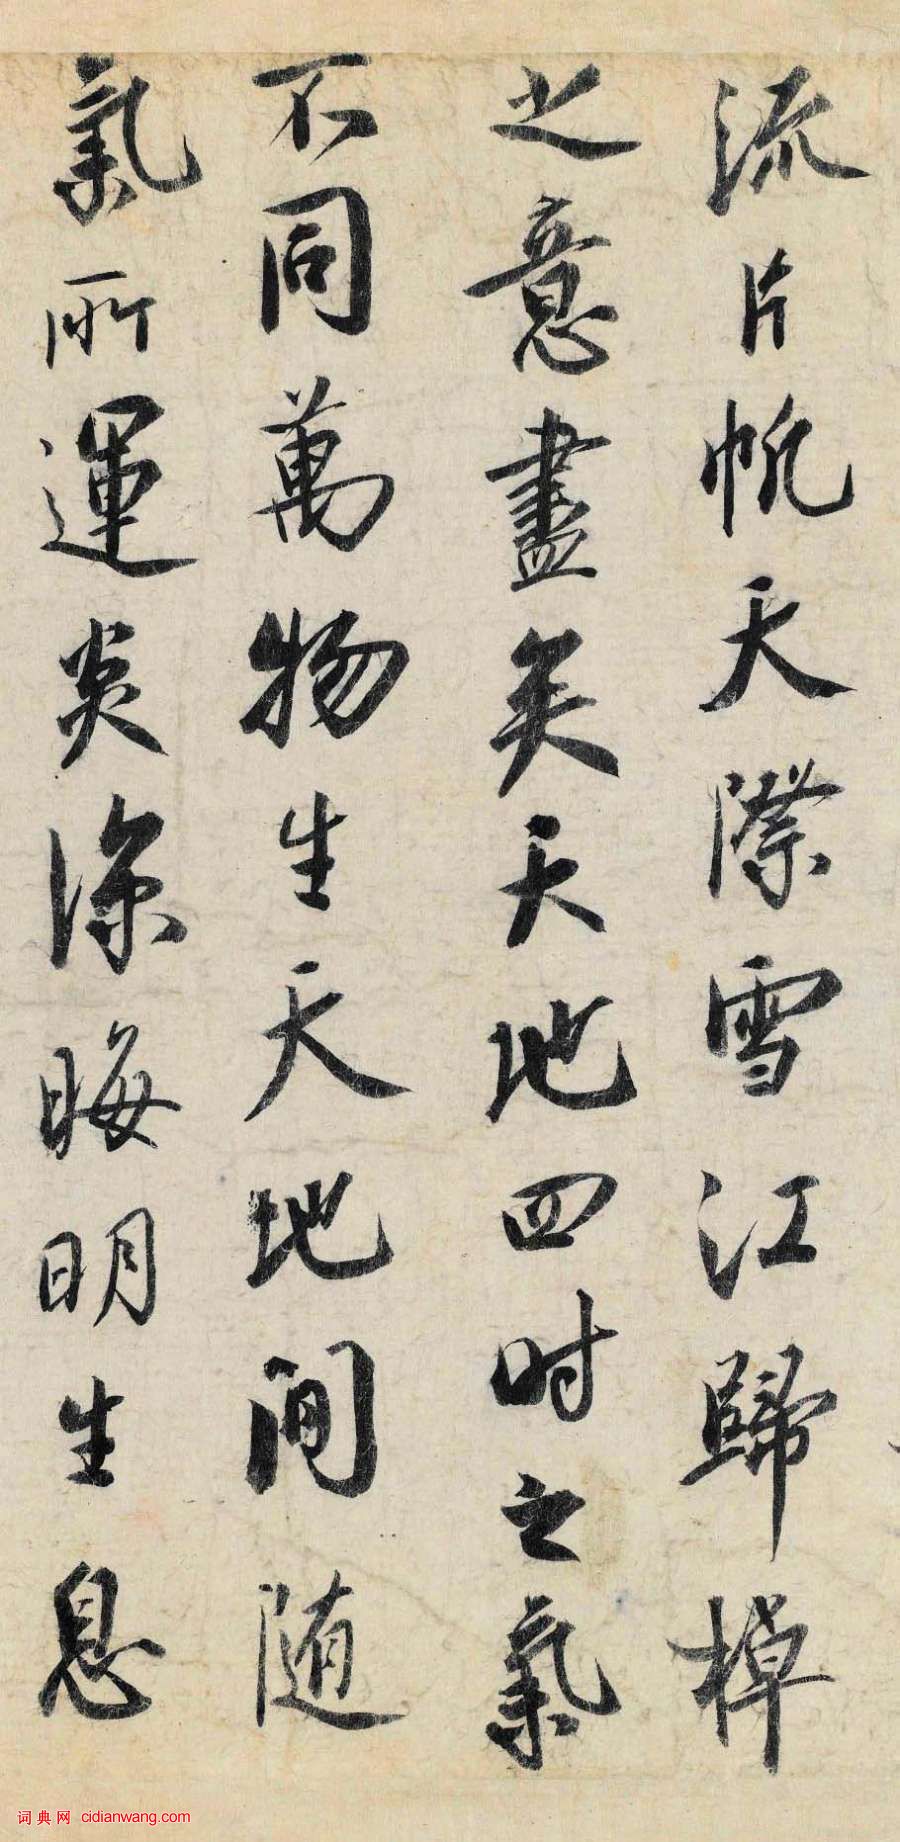 流片帆天際雪江歸棹
之意盡矣天地四时之氣
不同萬物生天地间随
氣所運炎涼晦明生息
词典网 cidianwang.com